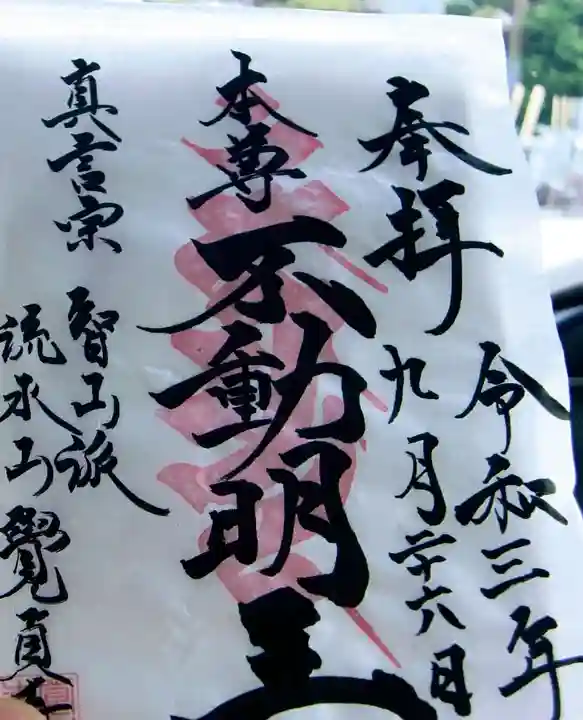 奉拝
令和三年
九月二十六日
本尊
不動明王
真言宗
智山派
流水山覺真寺